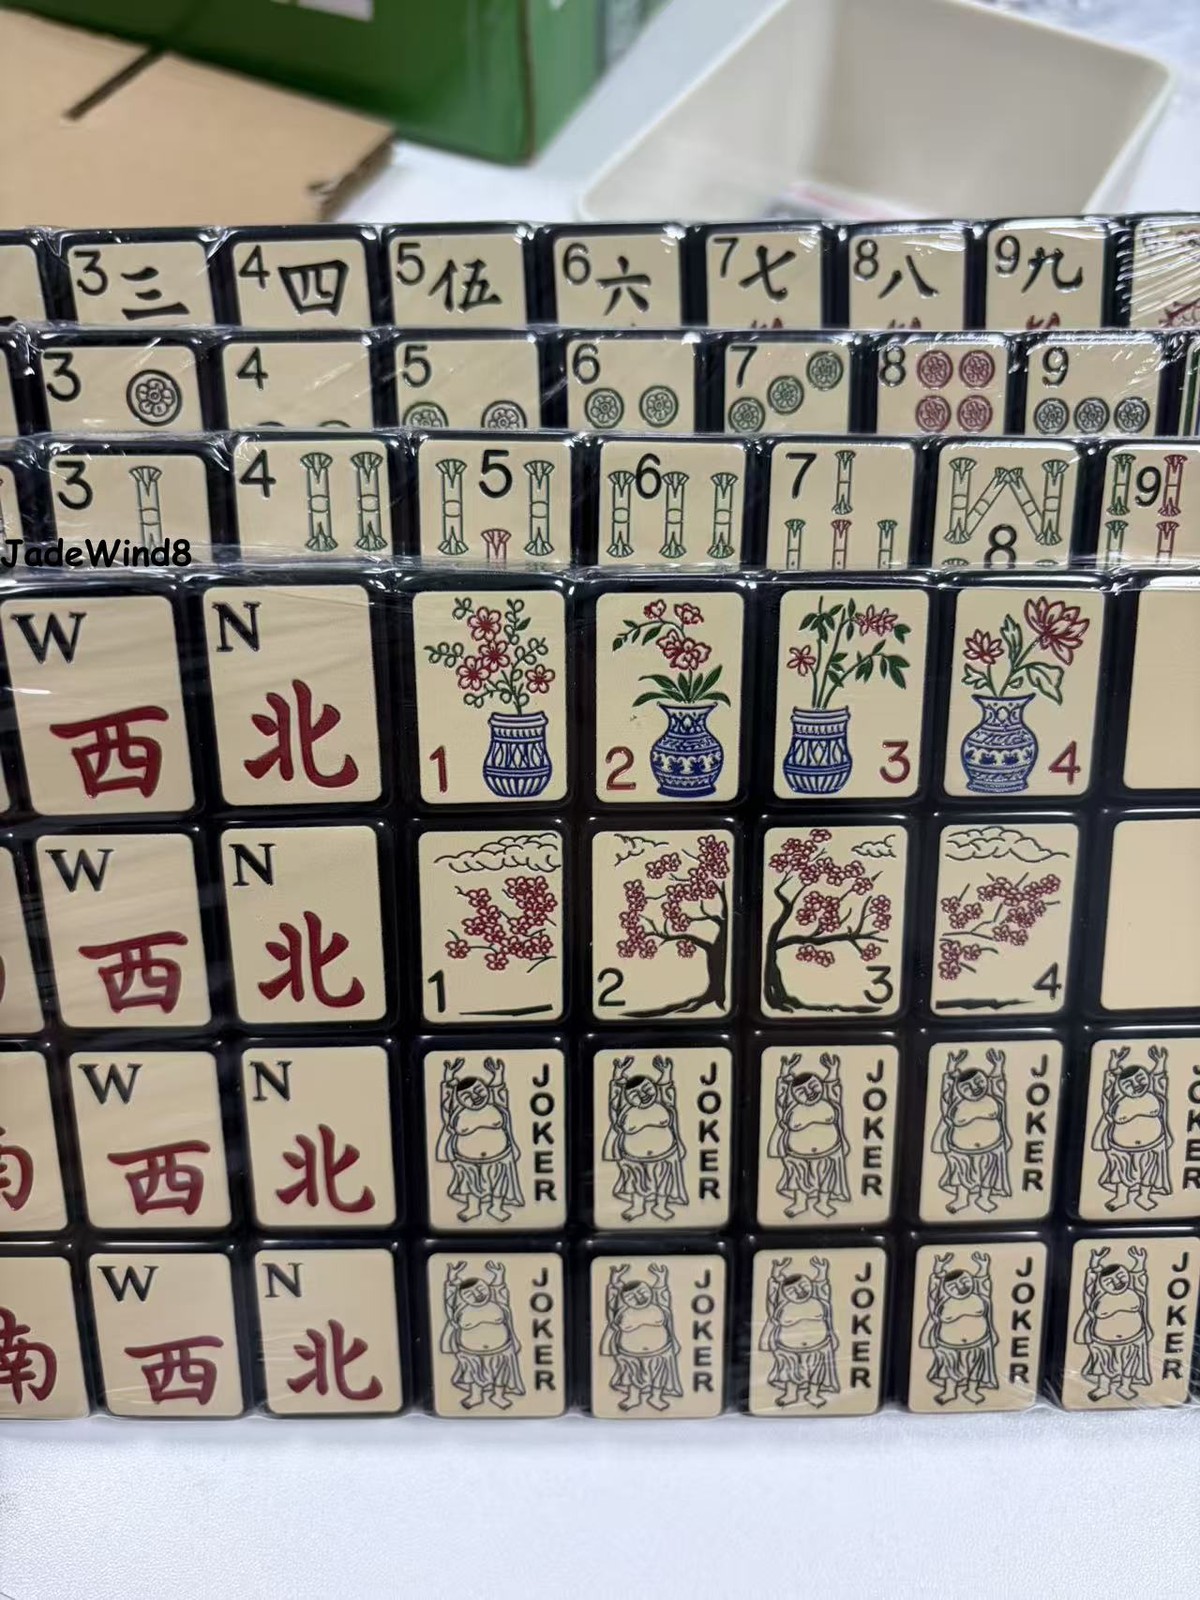 3 三 4 四 5 伍 6 六 7 七 8 八 9 九
3 4 5 6 7 8 9
3 4 5 6 7 8 9
JadeWind8
W 西 N 北 1 2 3 4
W 西 N 北 1 2 3 4
南 W 西 N 北 JOKER JOKER JOKER JOKER JOKER
南 W 西 N 北 JOKER JOKER JOKER JOKER JOKER